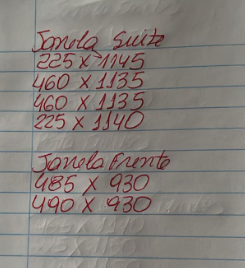 Janela Suite
225 x 1145
460 x 1135
460 x 1135
225 x 1140
Janela Frente
485 x 930
490 x 930